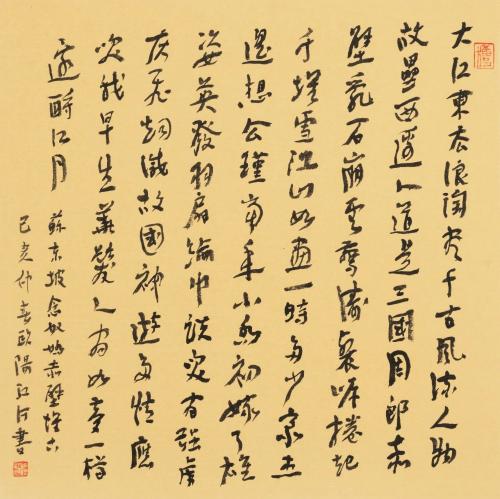 大江東去浪淘盡千古風流人物
故壘西邊人道是三國周郎赤
壁亂石崩雲驚濤裂岸捲起
千堆雪江山如畫一時多少豪杰
遙想公瑾當年小喬初嫁了雄
姿英發羽扇綸巾談笑間強虜
灰飛煙滅故國神遊多情應
笑我早生華髮人間如夢一樽
還酹江月
蘇東坡念奴嬌赤壁懷古
己亥仲春歐陽江河書